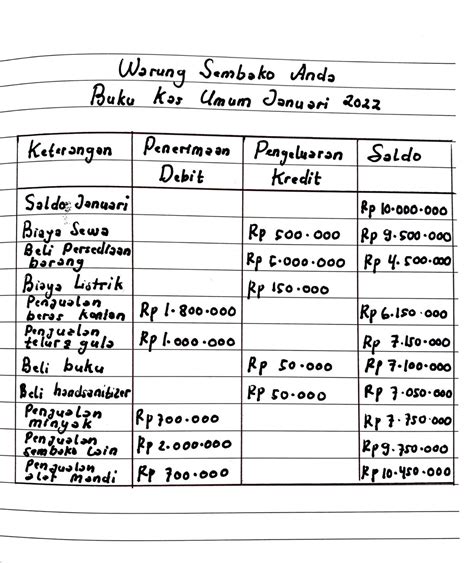 Warung Sembako Anda
Buku Kas Umum Januari 2022
Keterangan Penerimaan Debit Pengeluaran Kredit Saldo
Saldo Januari Rp 10.000.000
Biaya Sewa Rp 500.000 Rp 9.500.000
Beli Persediaan barang Rp 5.000.000 Rp 4.500.000
Biaya Listrik Rp 150.000
Penjualan beras kontan Rp 1.800.000 Rp 6.150.000
Penjualan telur & gula Rp 1.000.000 Rp 7.150.000
Beli buku Rp 50.000 Rp 7.100.000
Beli handsanibizer Rp 50.000 Rp 7.050.000
Penjualan minyak Rp 700.000 Rp 7.750.000
Penjualan sembako lain Rp 2.000.000 Rp 9.750.000
Penjualan alat mandi Rp 700.000 Rp 10.450.000